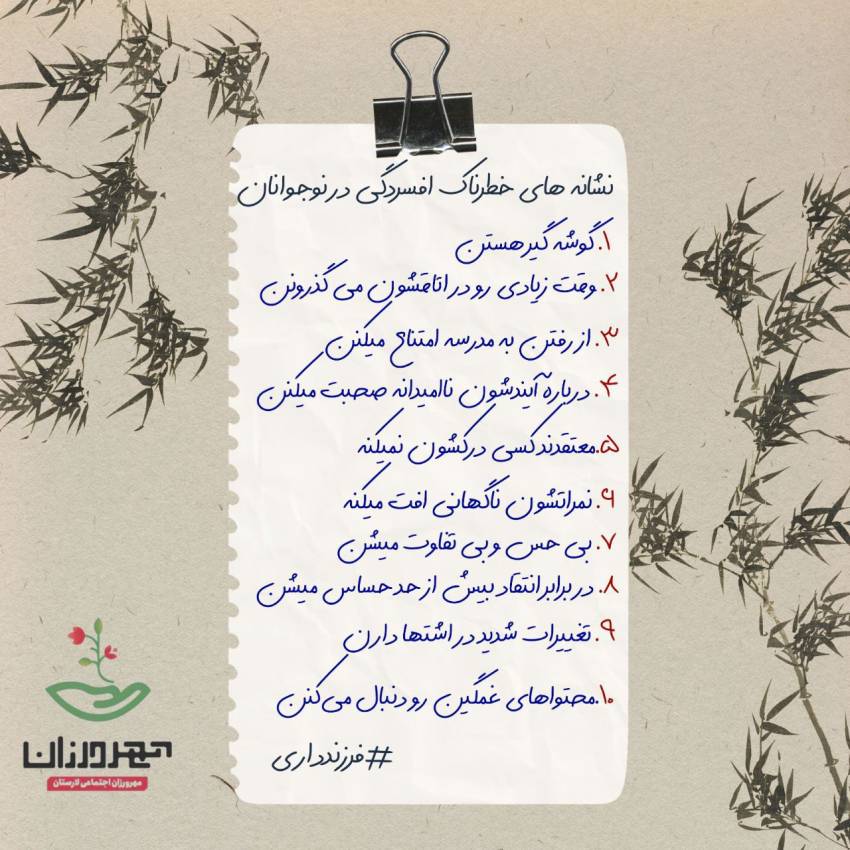 نشانه های خطرناک افسردگی در نوجوانان
۱.گوشه گیر هستن
۲.وقت زیادی رو در اتاقشون می گذرونن
۳. از رفتن به مدرسه امتناع میکنن
۴. درباره آیندشون ناامیدانه صحبت میکنن
۵.معتقدند کسی درکشون نمیکنه
۶. نمراتشون ناگهانی افت میکنه
۷. بی حس و بی تفاوت میشن
۸. در برابر انتقاد بیش از حد حساس میشن
۹. تغییرات شدید در اشتها دارن
۱۰.محتواهای غمگین رو دنبال می‌کنن
#فرزندداری
مهرورزان
مهرورزان اجتماعی لارستان